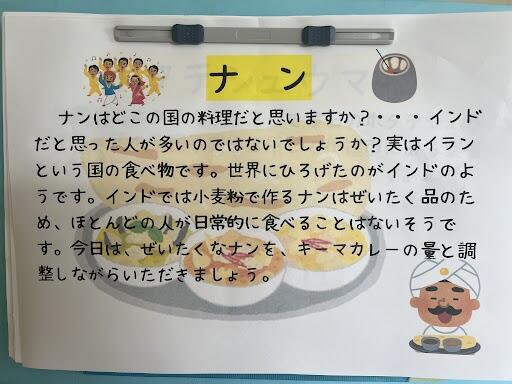 ナン
ナンはどこの国の料理だと思いますか?・・・インド
だと思った人が多いのではないでしょうか?実はイラン
という国の食べ物です。世界にひろげたのがインドのよ
うです。インドでは小麦粉で作るナンはぜいたく品のた
め、ほとんどの人が日常的に食べることはないそうで
す。今日は、ぜいたくなナンを、キーマカレーの量と調
整しながらいただきましょう。